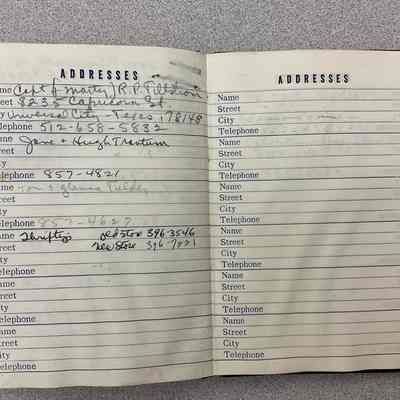 ADDRESSES
me Capt & Marty) R.P.
reet 8235 Capricorn St.
y Universal City - Texas, 78148
lephone 512-658-5832
me Jane & Hugh
reet
ty
elephone 857-4821
ame
treet
ity
elephone 857-4627
ame Thrifty's old store 396 3546
treet new store 396 7021
ity
elephone
ame
treet
ity
elephone
Name
Street
City
Telephone
ADDRESSES
Name
Street
City
Telephone
Name
Street
City
Telephone
Name
Street
City
Telephone
Name
Street
City
Telephone
Name
Street
City
Telephone
Name
Street
City
Telephone